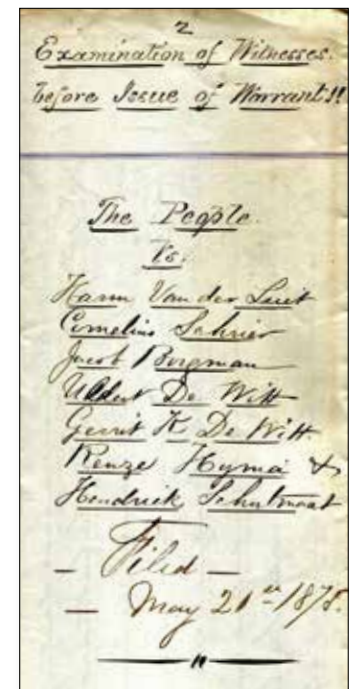 2
Examination of Witnesses.
before Issue of Warrant!!
The People.
Vs.
Harm Van der
Cornelius Schrier
Jacob Borgman
De Witt
Gerrit K. De Witt.
Renze Hyma &
Hendrick Schutmaat
– Filed –
– May 21st 1875.